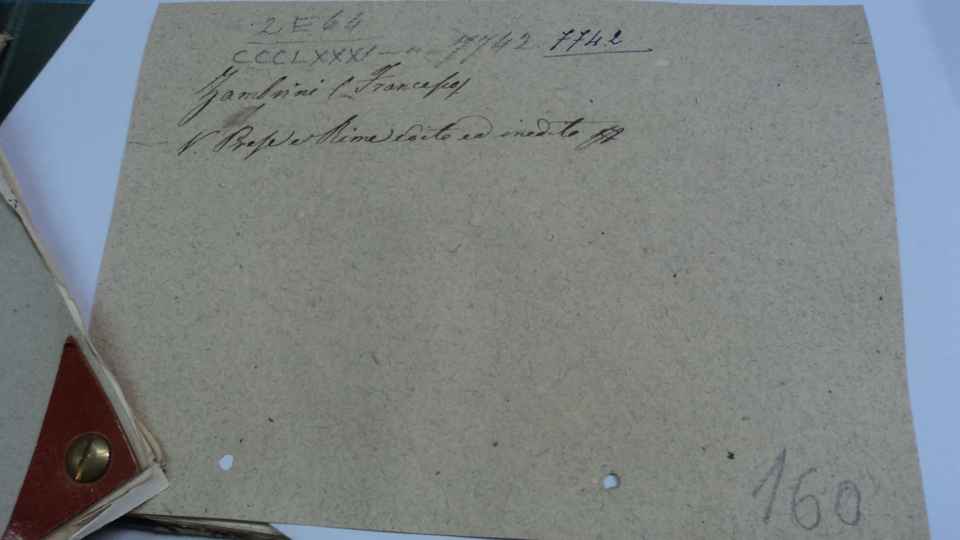 2 E 64
CCCLXXXI — " — 7742 7742
Zambrini (Francesco)
V. Prose e Rime edite ed inedite
160